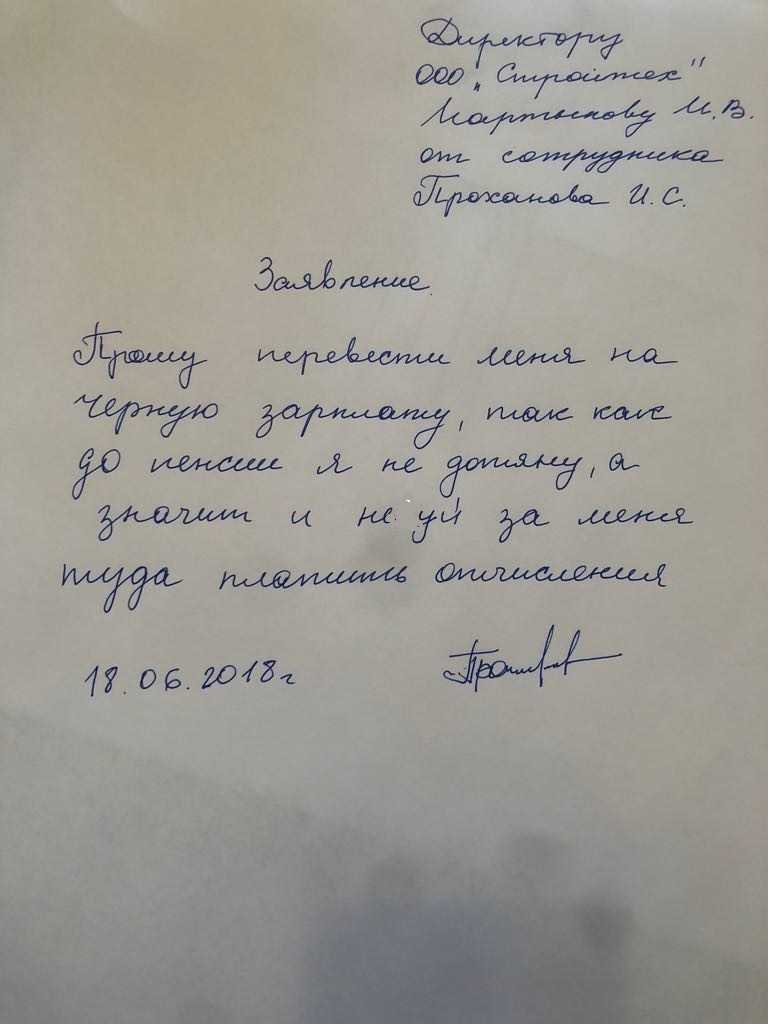 Директору
ООО „Стройтех"
Мартынову И.В.
от сотрудника
Проханова И.С.
Заявление.
Прошу перевести меня на
черную зарплату, так как
до пенсии я не дотяну, а
значит и не. уй за меня
туда платить отчисления
18.06.2018г